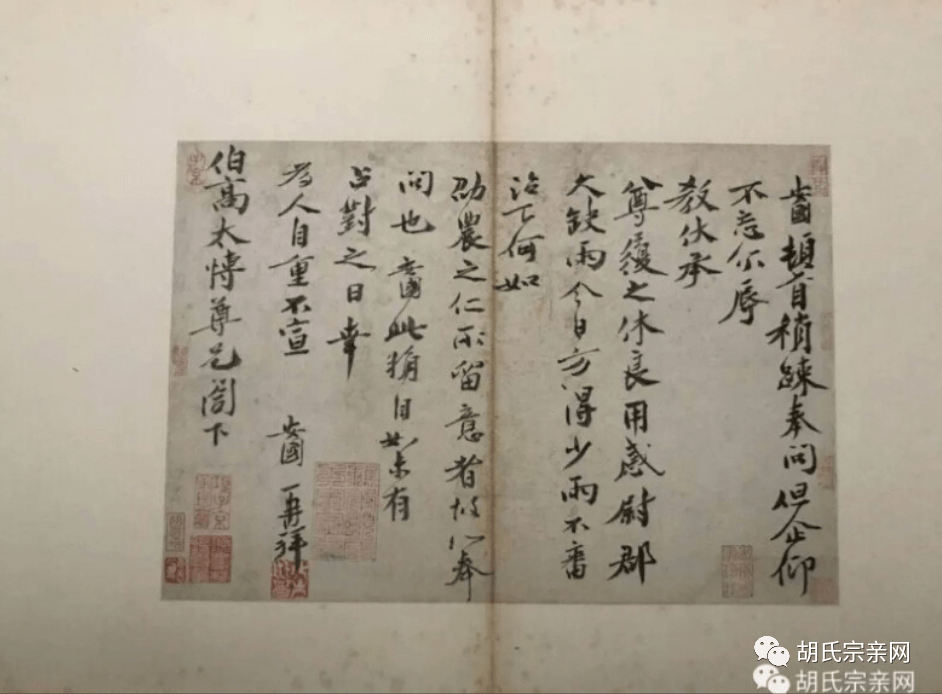 安國頓首稍踈奉問但企仰
不忘尒辱
教伏承
尊履之休良用感尉郡
大缺雨今日方得少雨不審
治下何如
劭農之仁所留意者故以奉
問也安國此自如未有
占對之日幸
為人自重不宣 安國再拜
伯高太博尊兄閤下
胡氏宗亲网
胡氏宗亲网